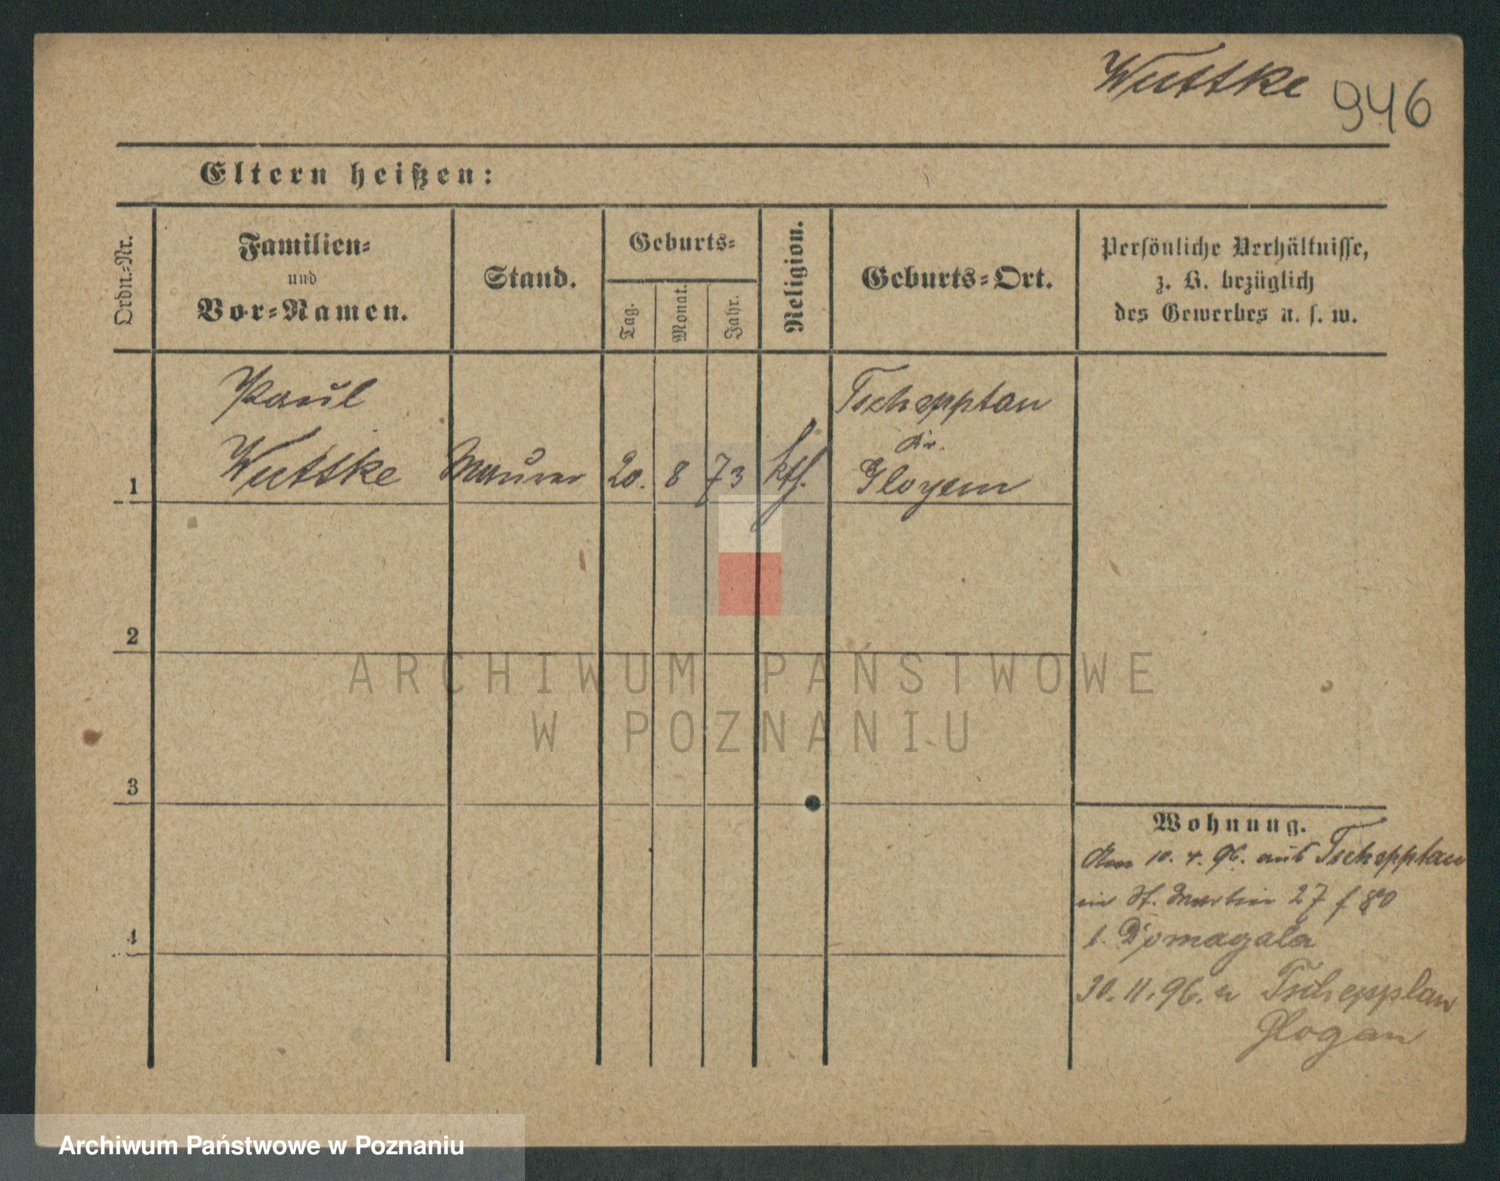 Wuttke 946
Eltern heißen:
Ordn.-Nr.
Familien-
und
Vor-Namen.
Stand.
Geburts-
Tag.
Monat.
Jahr.
Religion.
Geburts-Ort.
Persönliche Verhältnisse,
z. B. bezüglich
des Gewerbes u. s. w.
Paul
Wuttke
Maurer
20.
8
73
kth.
Tschepptau
Kr.
Glogau
1
2
3
4
ARCHIWUM PAŃSTWOWE
W POZNANIU
Wohnung.
10. 4. 96. aus Tschepptau
in St. Martin 27 f 80
b. Domagala
30. 11. 96. n Tschepplau
Glogau
Archiwum Państwowe w Poznaniu